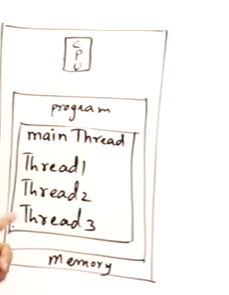 CPU
program
main Thread
Thread1
Thread2
Thread3
memory